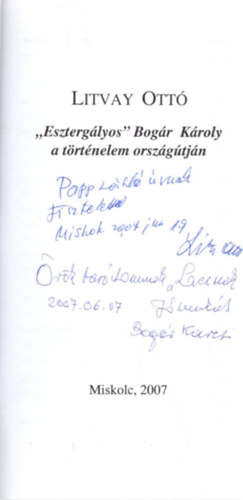 LITVAY OTTÓ
„Esztergályos” Bogár Károly
a történelem országútján
Papp László úrnak
Tisztelettel
Miskolc 2007 jun 19
Örök barátomnak Lacinak
2007.06.07
Bogár Karcsi
Miskolc, 2007